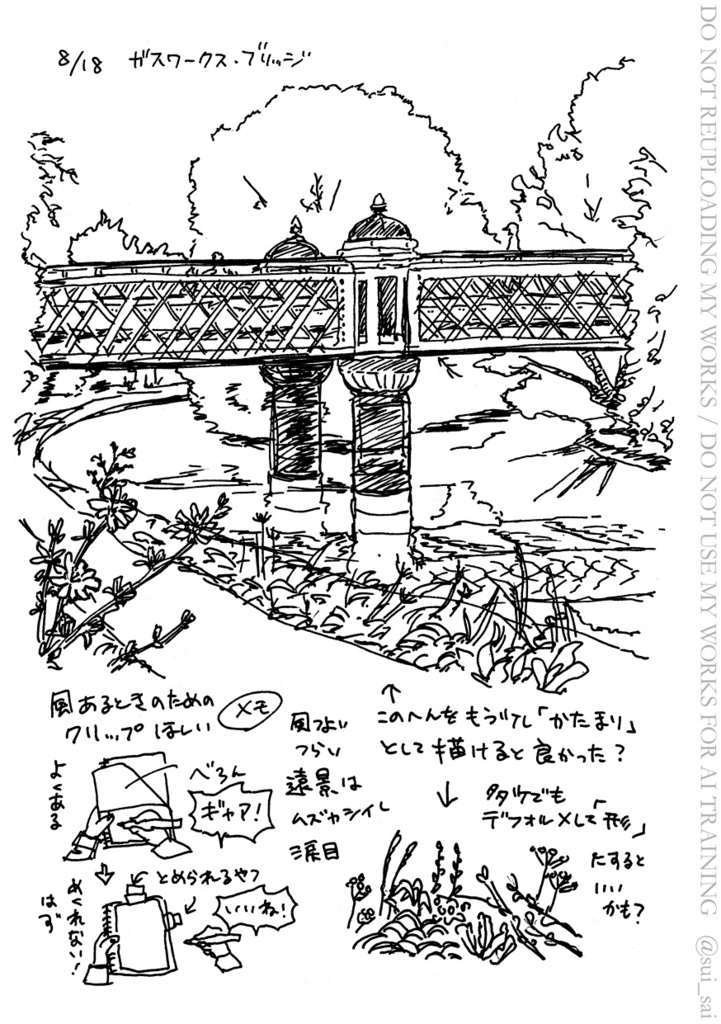 8/18 ガスワークス・ブリッジ
風あるときのための
クリップほしい
メモ
よくある
べろん
ギャア!
とめられるやつ
めくれない!
はず
いいね!
風つよい
つらい
遠景は
ムズカシイし
涙目
↑
このへんをもう少し「かたまり」
として描けると良かった?
↓
多少でも
デフォルメして「形」
にすると
いい
かも?
DO NOT REUPLOADING MY WORKS / DO NOT USE MY WORKS FOR AI TRAINING @sui_sai